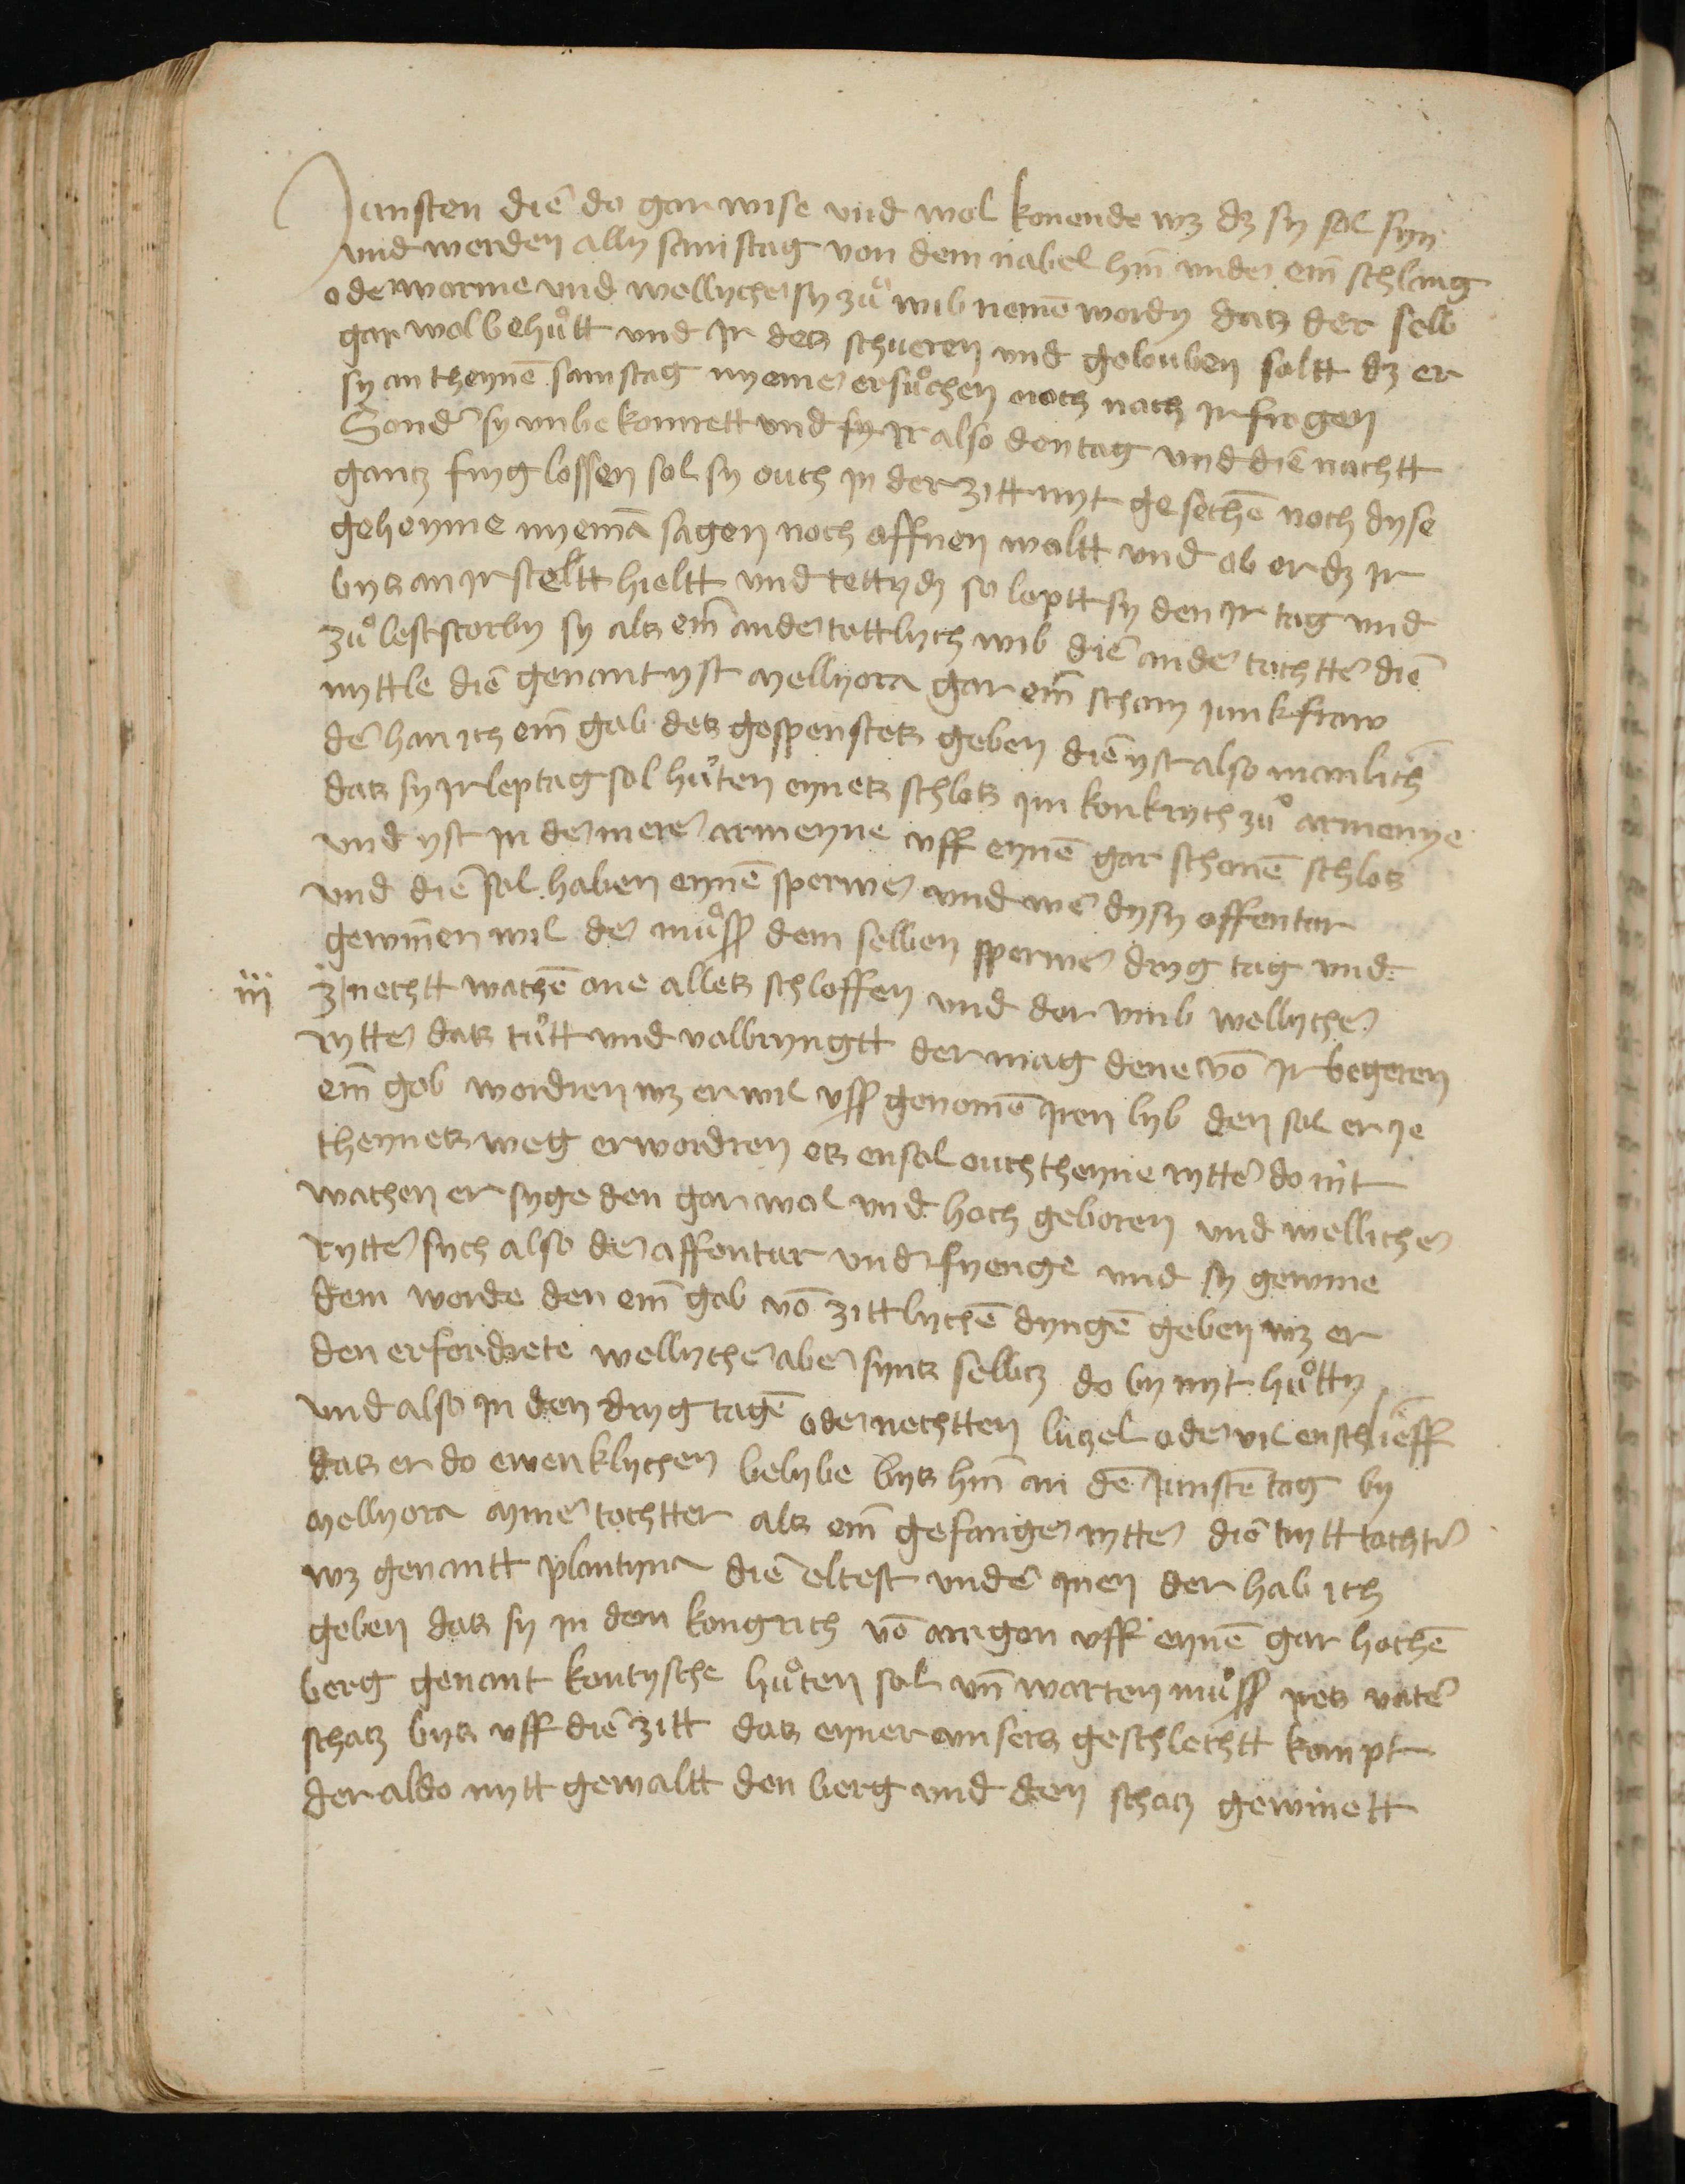 Junsten die do gar wise vnd wol konende wz dz sy sol syn
vnd werden ally samstag von dem nabel hin vnder ein schlang
oder worme vnd wellycher sy zuͦ wib nemen wordy datz der selb
gar wol behuͦtt vnd Ir detz schweren vnd gelouben soltt dz er
sy an theynen samstag nyemer ersuͦchen noch nach Ir frogen
Sonder sy vnbekomrett vnd fry Ir also den tag vnd die nachtt
gantz fryg lossen sol sy ouch In der zitt nyt gesechen noch dyse
geheyme nyeman sagen noch offnen woltt vnd ob er dz Ir
bytz an Ir steltt hieltt vnd tetty dz so leptt sy den Ir tag vnd
zuͦ lest storby sy altz ein ander tottlych wib die ander tochtter die
myttle die genant yst mellyora gar ein schony junkfraw
der han ich ein gob detz gespenstetz geben die yst also manlich
datz sy Ir leptag sol huͤten eynetz schlotz Im konkrych zuͦ armenye
vnd yst In der merer armenye vff eynen gar schonen schlotz
vnd die sol haben eynen sperwer vnd wer dysy offentur
gewinnen wil der muͦss dem selben sperwer dryg tag vnd
iij nechtt wachen one alletz schloffen vnd dor vmb wellycher
rytter datz tuͦtt vnd volbryngtt der mag dene von Ir begeren
ein gob wordren wz er wil vss genomen Iren lyb den sol er Ie
theynetz weg erwordren etz ensol ouch theyne rytter do nit
wachen er syge den gar wol vnd hoch geboren vnd wellicher
rytter sych also der affentur vnderfyenge vnd sy gewine
dem worde den ein gob von zittlychen dyngen geben wz er
den erfordrete wellycher aber syntz selbtz do by nyt huͦtty
vnd also In den dryg tagen oder nechtten lutzel oder vil enschlieff
datz er do ewenklychen belybe bytz hin an den Junsten tag by
mellyora myner tochtter altz ein gefangner rytter die trytt tochter
wz genantt plantyna die eltest vnder Inen der hab ich
geben datz sy In dem kongrich von arragon vff eynen gar hochen
berg genant kontysche huͦten sol vnd warten muͦss Iretz vater
schatz bytz vff die zitt datz eyner vnsers geschlechtt kompt
der aldo mytt gewaltt den berg vnd den schatz gewinett